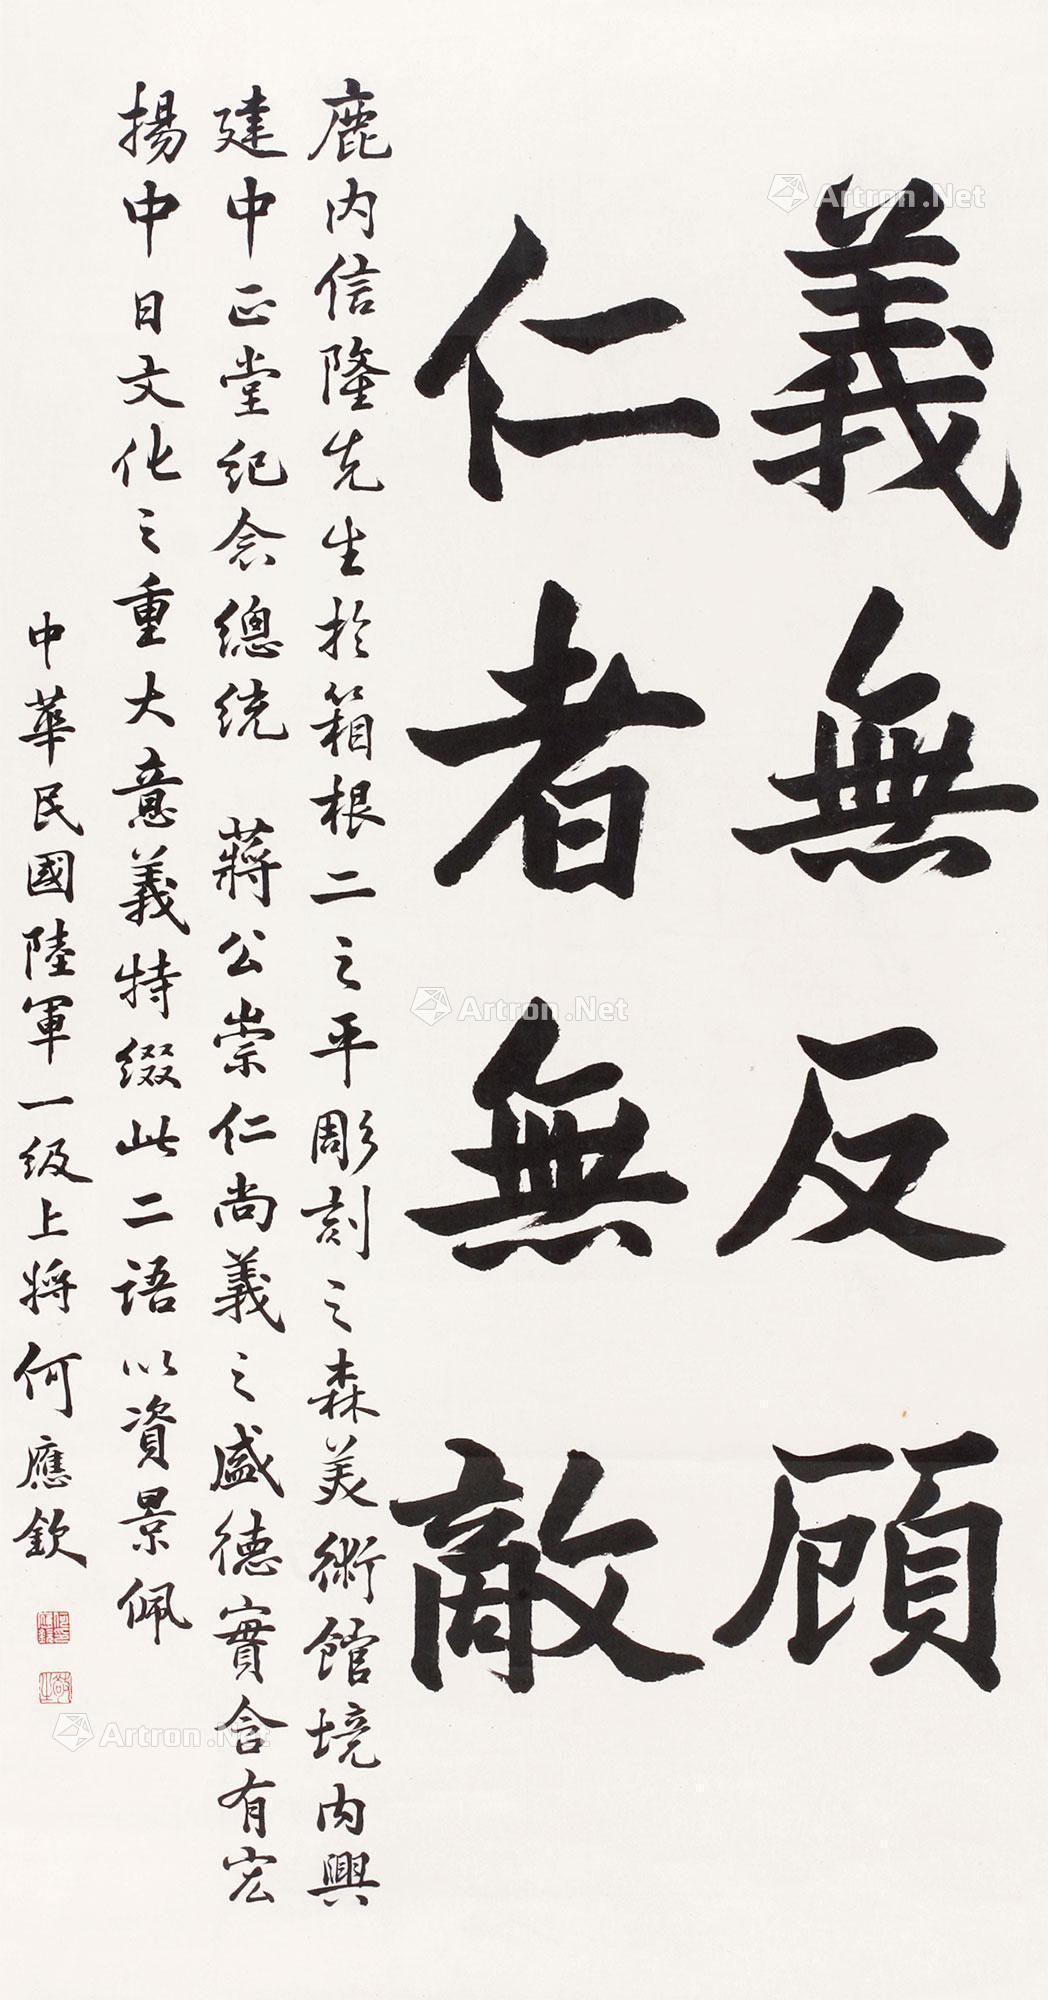 義無反顧
仁者無敵
鹿内信隆先生於箱根二之平彫刻之森美術館境内興
建中正堂紀念總統 蔣公崇仁尚義之盛德實含有宏
揚中日文化之重大意義特綴此二語以資景佩
中華民國陸軍一級上將何應欽
Artron.Net
Artron.Net
Artron.Net